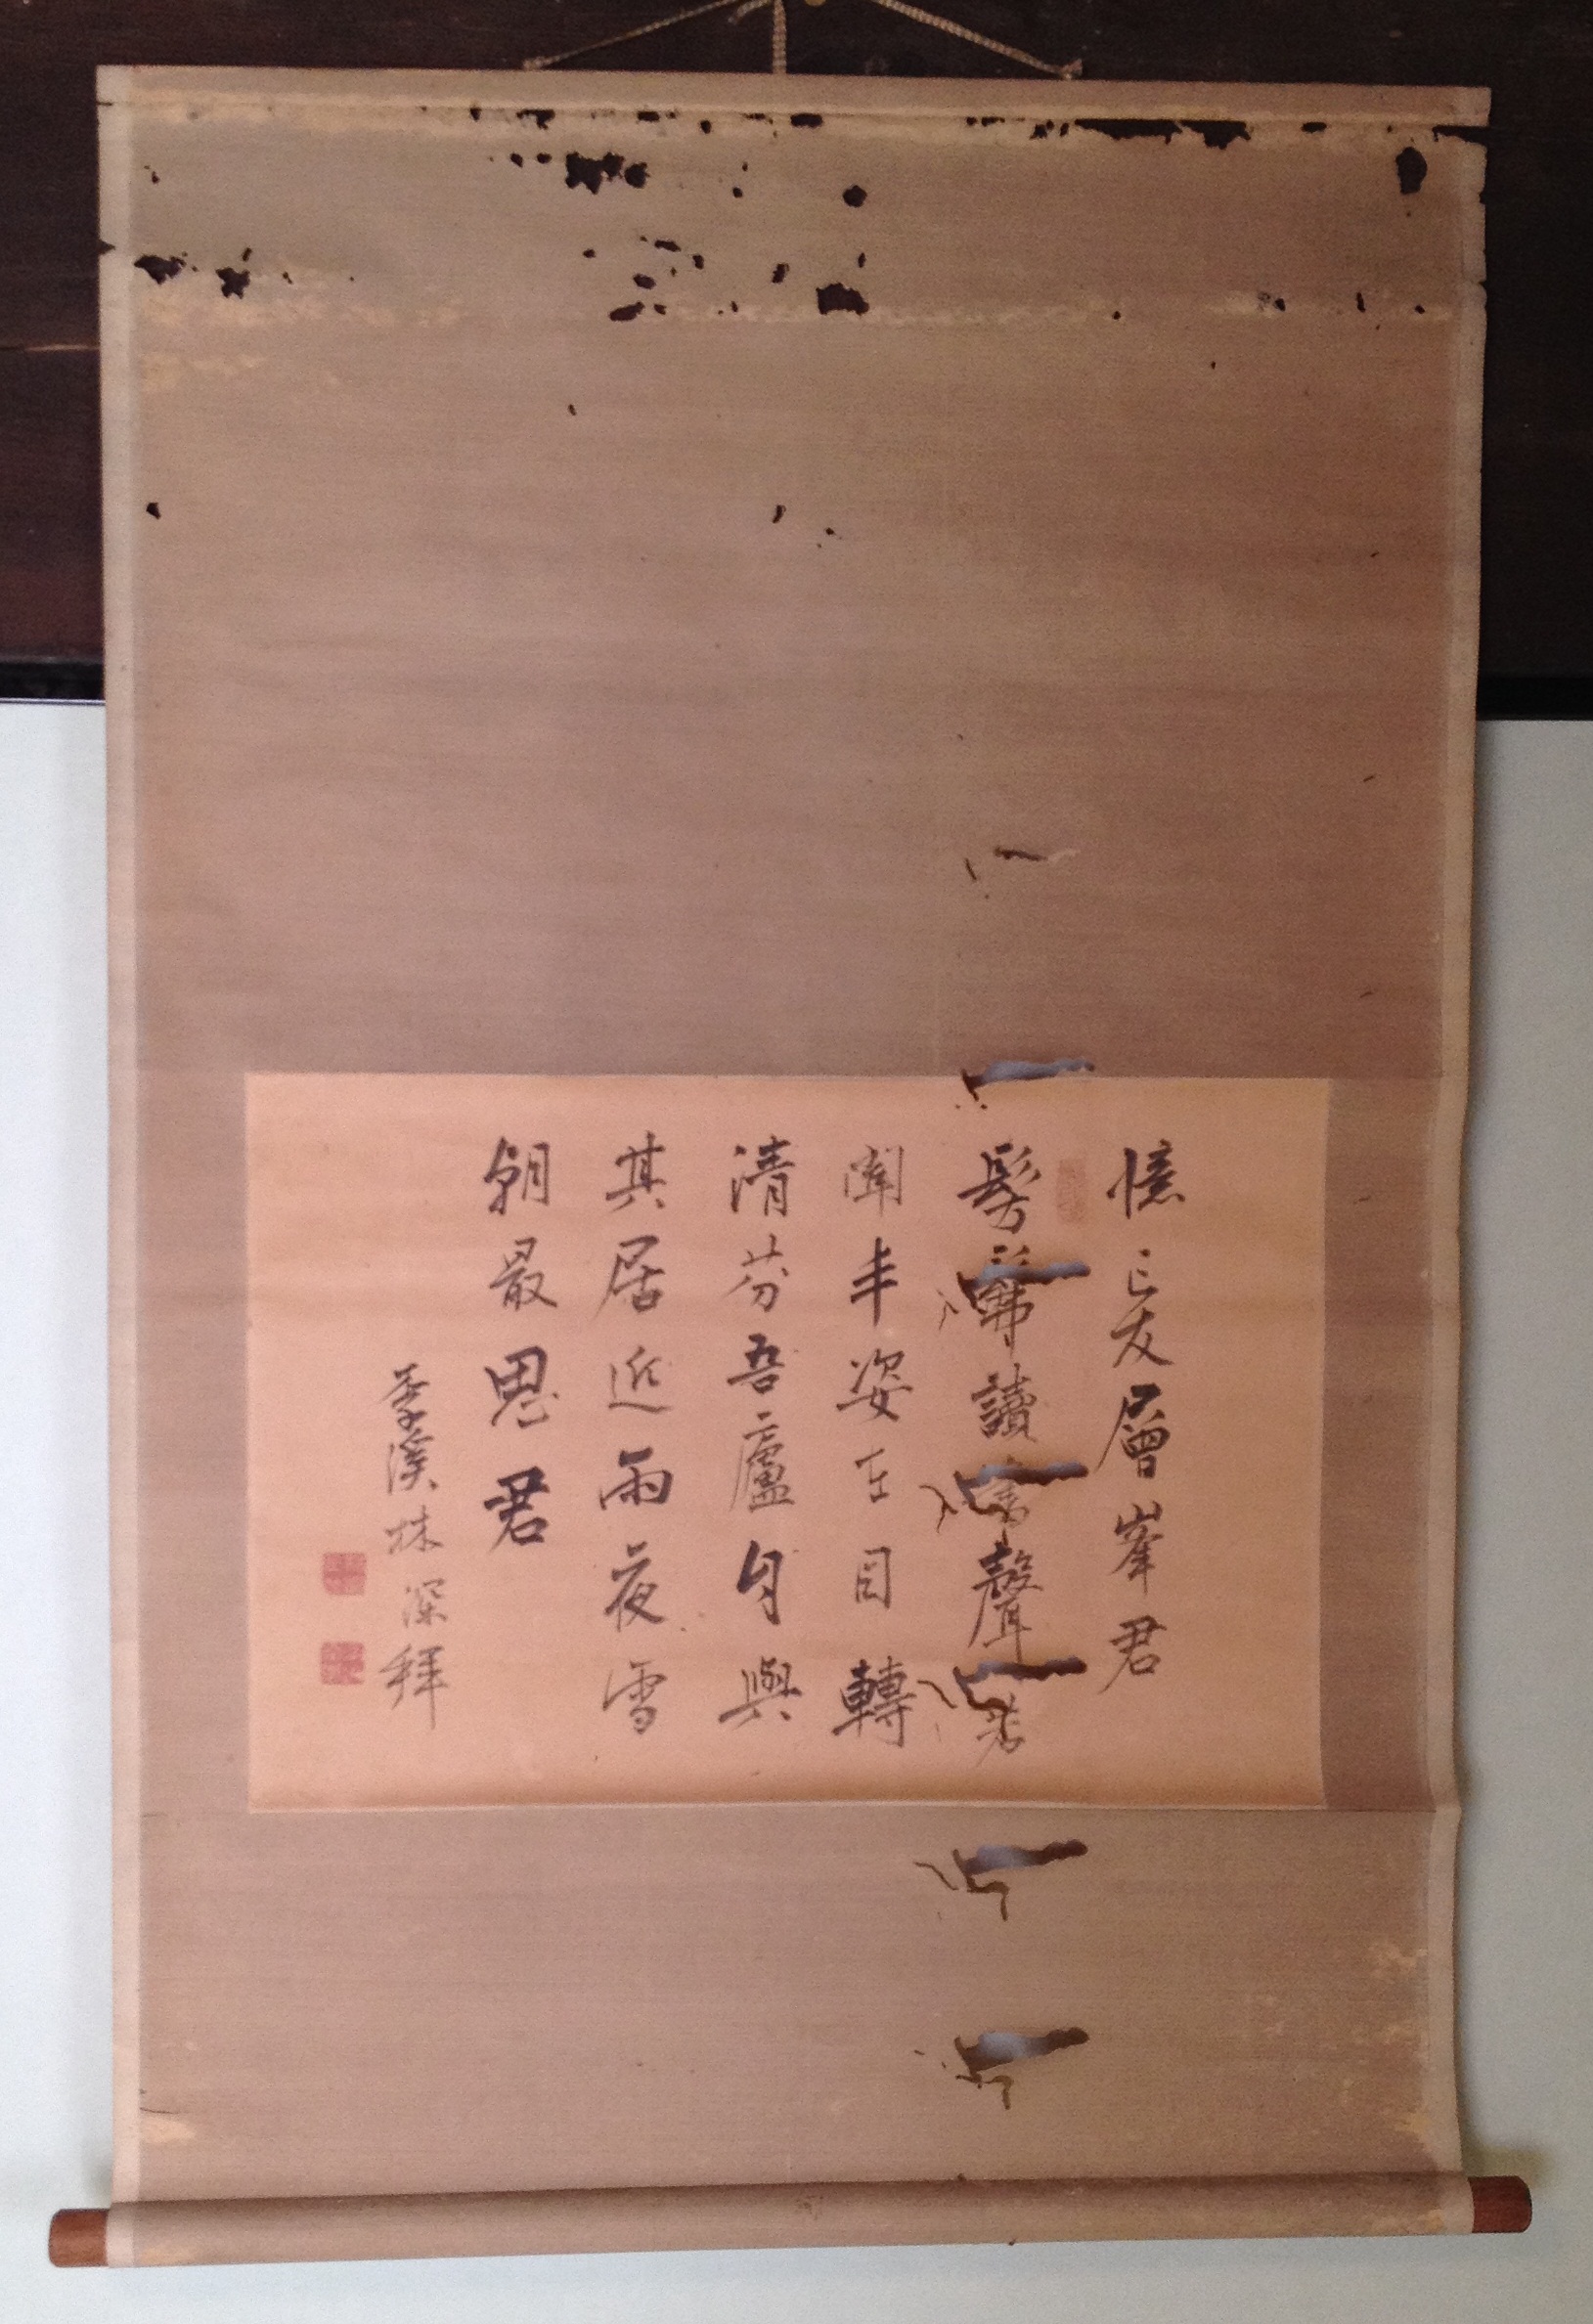 憶亡友層峯君
髣髴讀書聲若
聞丰姿在目轉
清芬吾廬自與
其居近雨夜雪
朝最思君
季溪林深拜